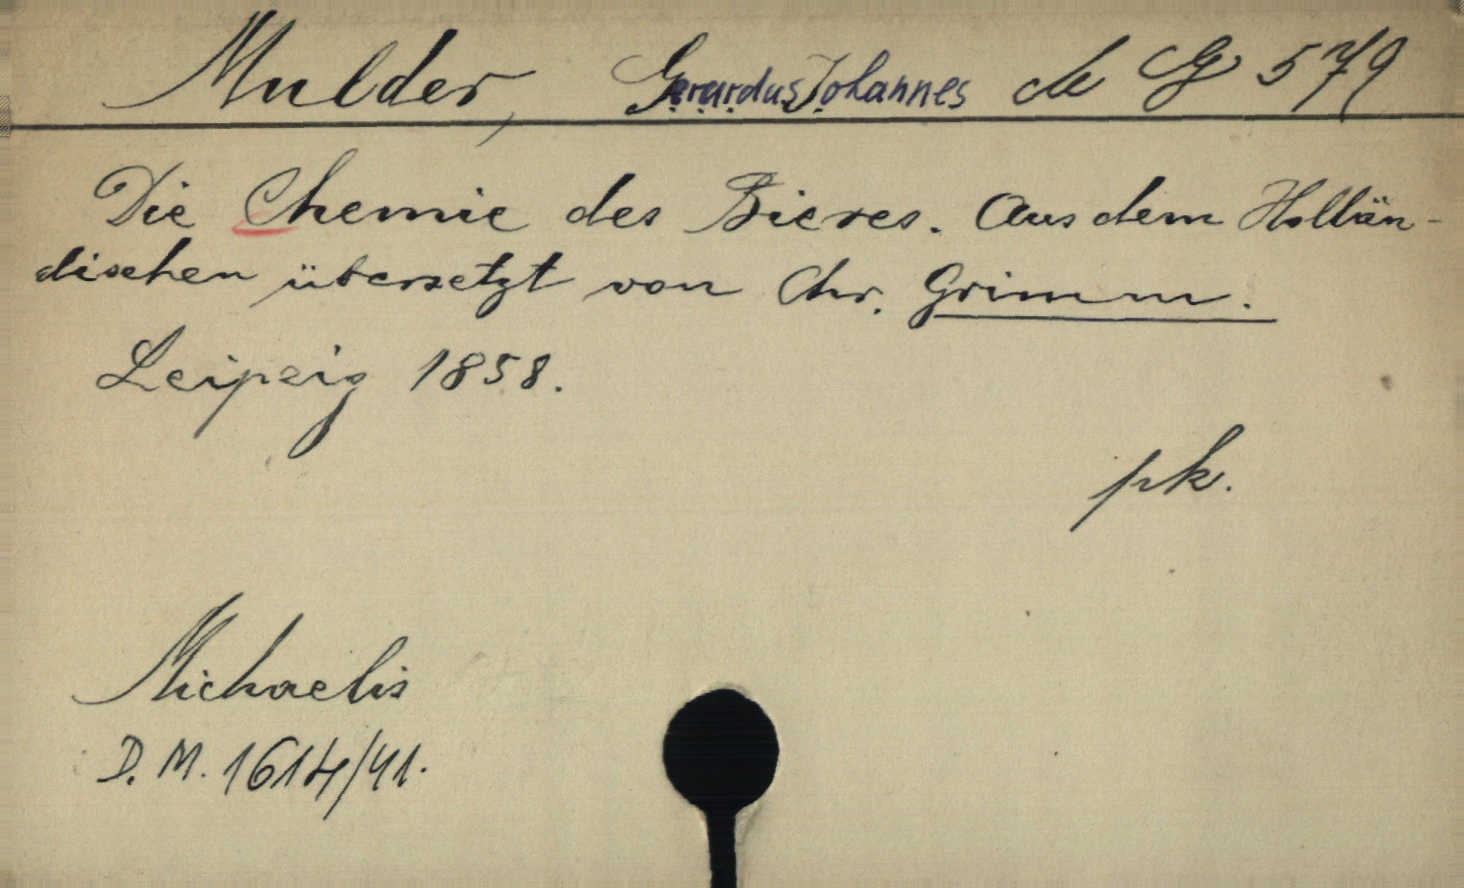 Mulder, Gerardus Johannes de G 579
Die Chemie des Bieres. Aus dem Hollän-
dischen übersetzt von Chr. Grimm.
Leipzig 1858.
pk.
Michaelis
D. M. 1614/41.